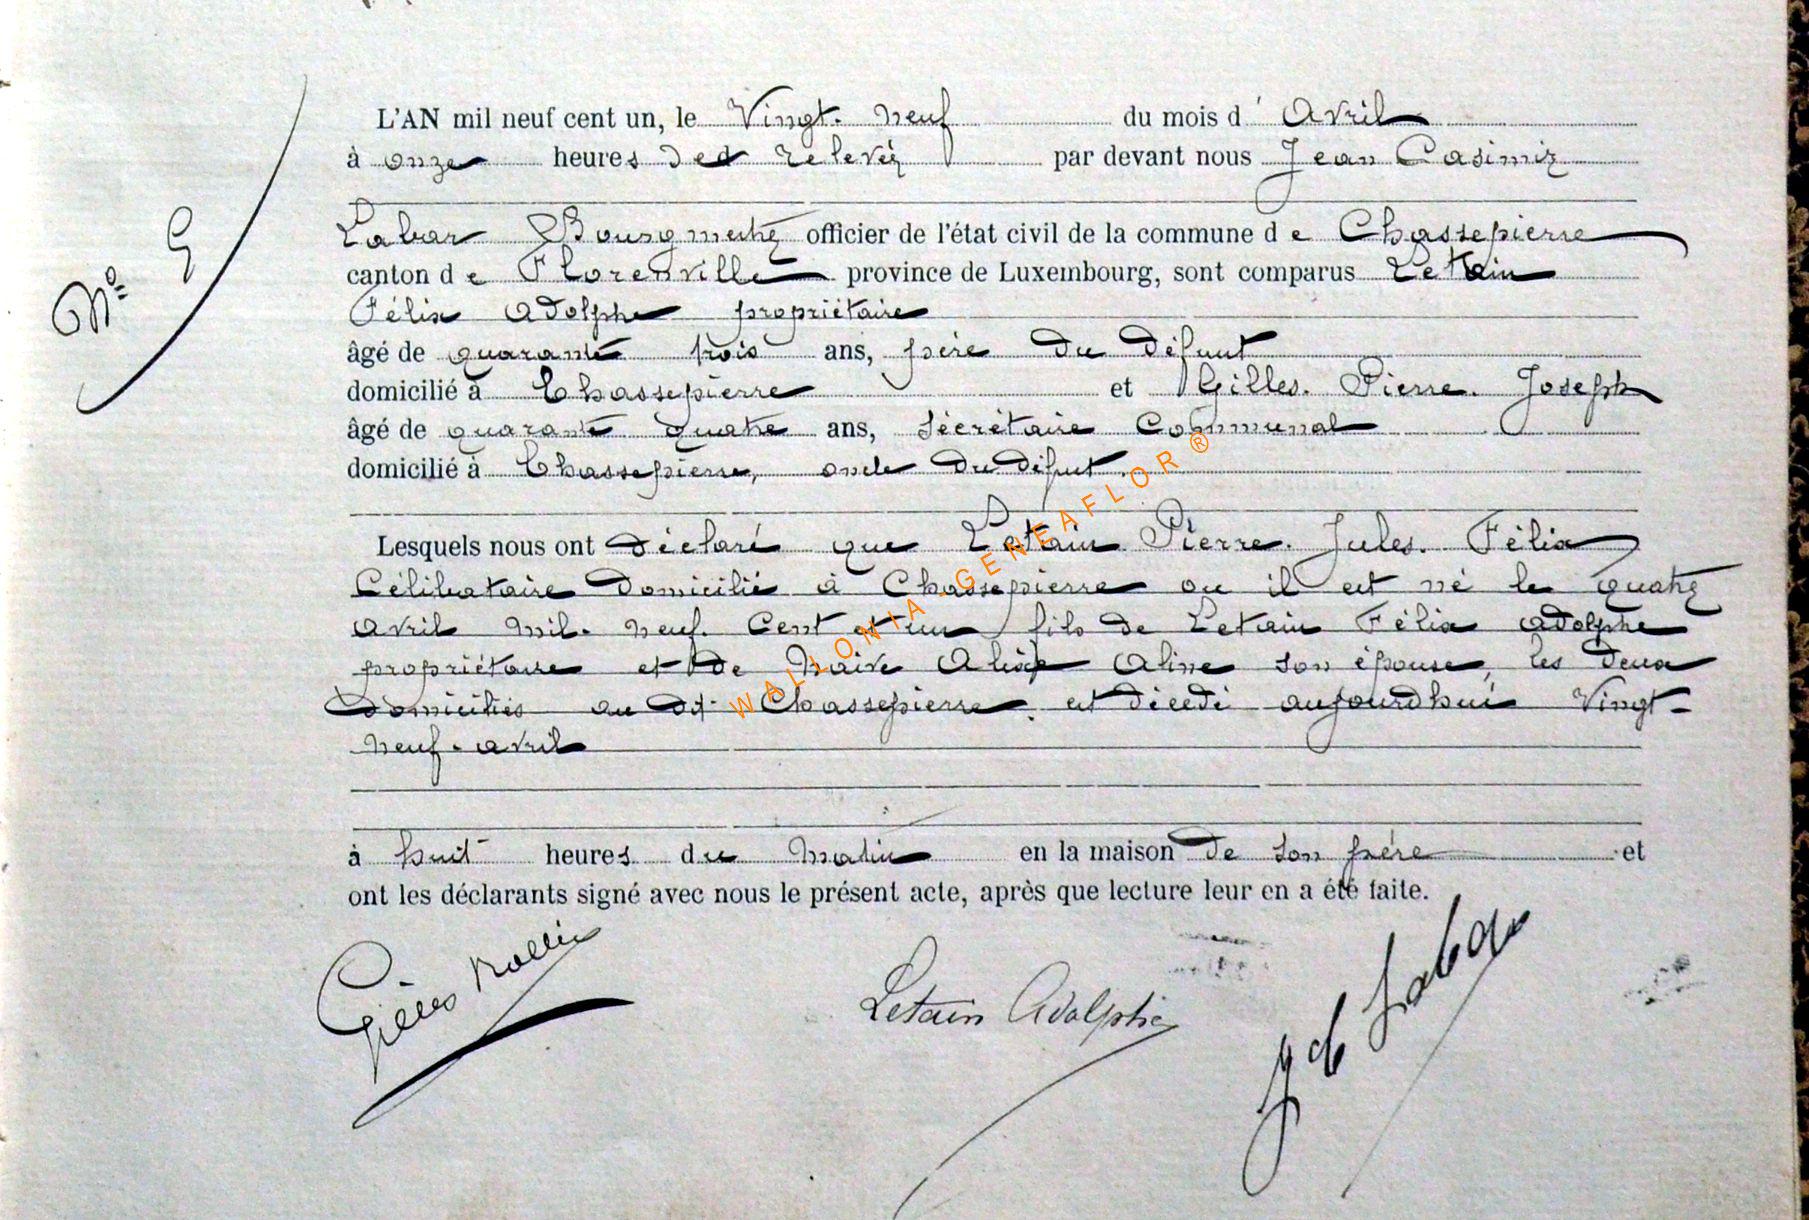 L'AN mil neuf cent un, le Vingt-neuf du mois d'Avril
à onze heures de relevée par devant nous Jean Casimir
Labar Bourgmestre officier de l'état civil de la commune de Chassepierre
canton de Florenville province de Luxembourg, sont comparus Letain
Félix Adolphe propriétaire
âgé de quarante trois ans, père du défunt
domicilié à Chassepierre et Gilles. Pierre. Joseph
âgé de quarante quatre ans, sécrétaire Communal
domicilié à Chassepierre, oncle du défunt.
Lesquels nous ont déclaré que Letain Pierre. Jules. Félix
Célibataire domicilié à Chassepierre ou il est né le quatre
avril mil-neuf. Cent et un fils de Letain Félix adolphe
propriétaire et de Aline son épouse, les deux
domiciliés au dit Chassepierre. est décédé aujourdhui Vingt-
neuf-avril
à huit heures du matin en la maison de son père et
ont les déclarants signé avec nous le présent acte, après que lecture leur en a été faite.
Nº
Gilles
Letain Adolphe
J C Labar
WALLONIA-GENEAFLOR®